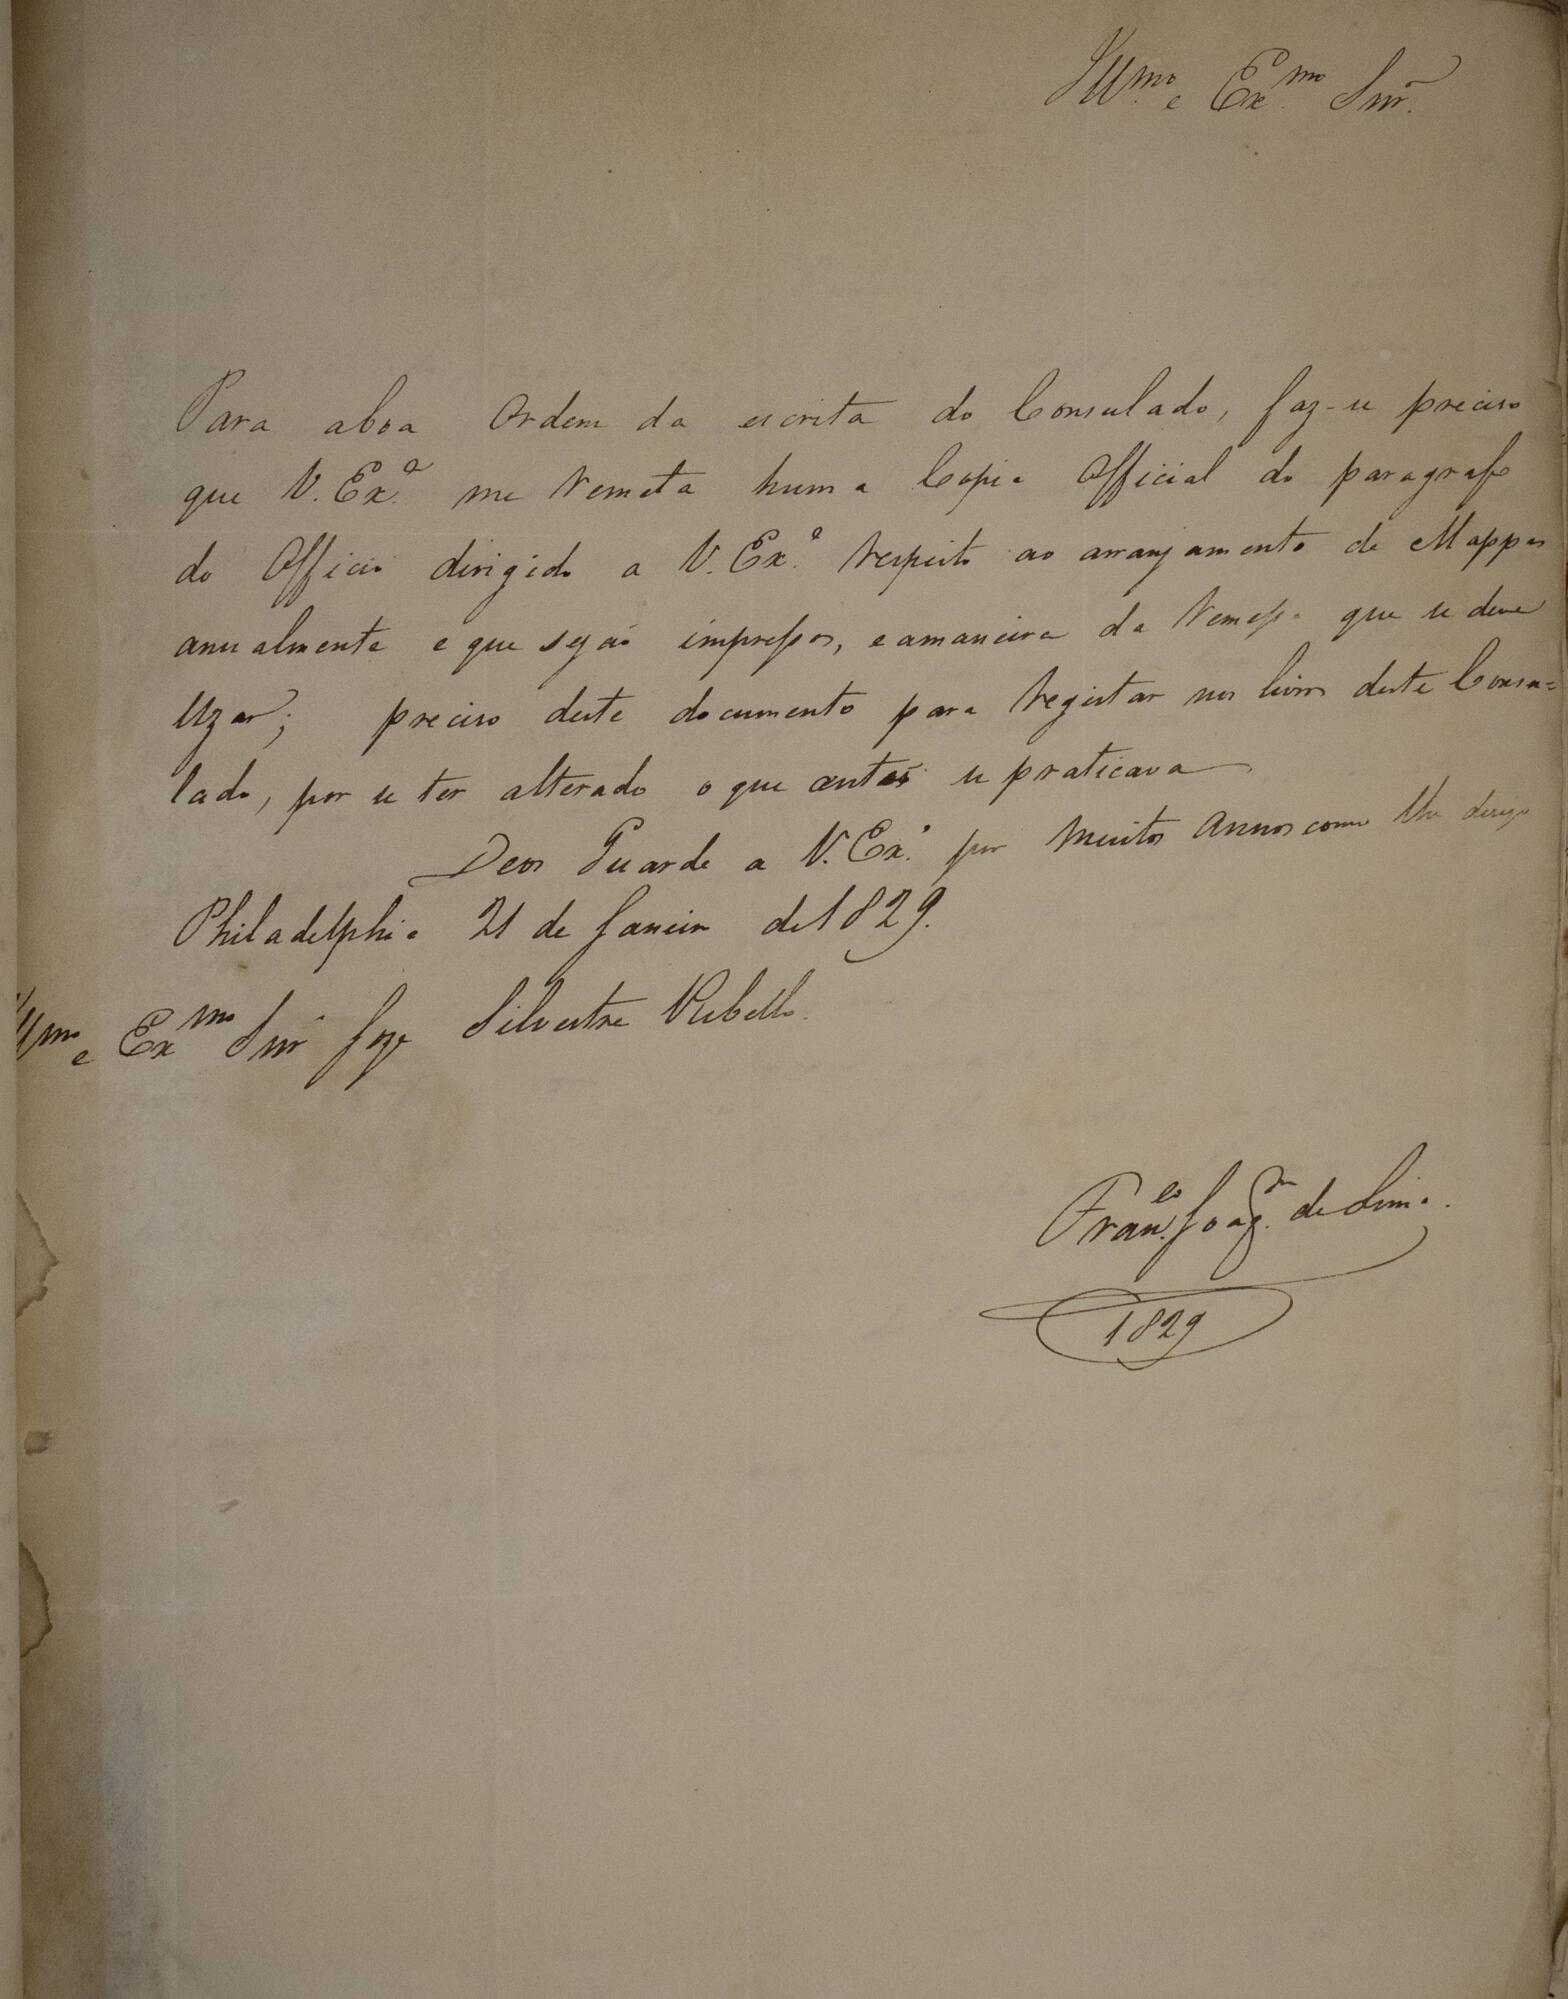 Ill.mo e Ex.mo Snr.
Para aboa Ordem da escrita do Consulado, faz-se preciso
que V. Ex.a me Remeta huma Copia Official do paragrafo
do Officio dirigido a V. Ex.a Respeito ao arranjamento de Mappas
anualmente e que sejão impressos, e amaneira da Remessa que se deve
Uzar; preciso deste documento para Registar nos livros deste Consu=
lado, por se ter alterado o que antes se praticava
Deos Guarde a V. Ex.a por Muitos Annos como lhe dezejo
Philadelphia 21 de Janeiro de 1829.
Ill.mo e Ex.mo Snr Joze Silvestre Rebello.
Fran.co Joaq.m de Lima.
1829